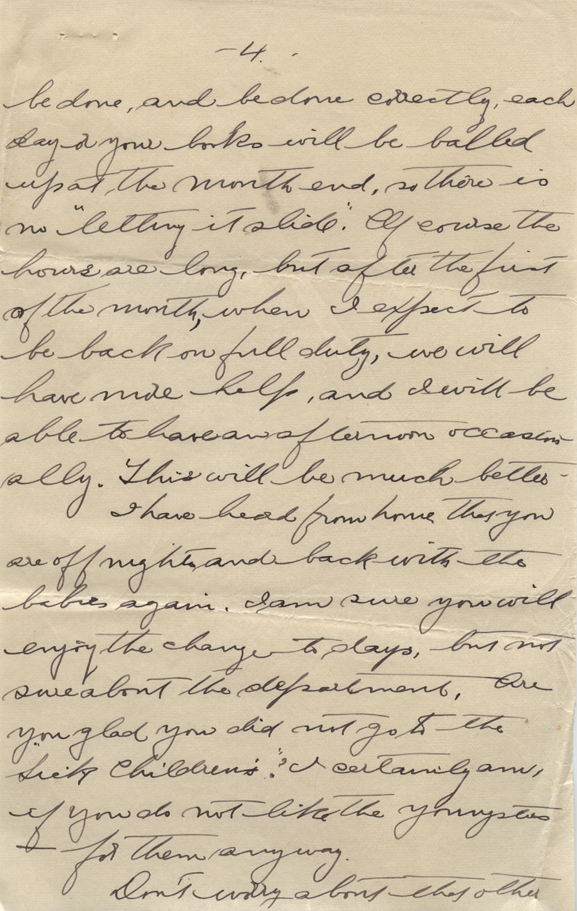 -4.
be done, and be done correctly, each
day or your books will be balled
up at the month end, so there is
no "letting it slide." Of course the
hours are long, but after the first
of the month, when I expect to
be back on full duty, we will
have more help, and I will be
able to have an afternoon occasion-
ally. This will be much better-
I have heard from home that you
are off nights, and back with the
babies again. I am sure you will
enjoy the change to days, but not
sure about the department. Are
you glad you did not go to the
"Sick Children's"? I certainly am,
if you do not like the youngsters
- for them anyway.
Don't worry about the other